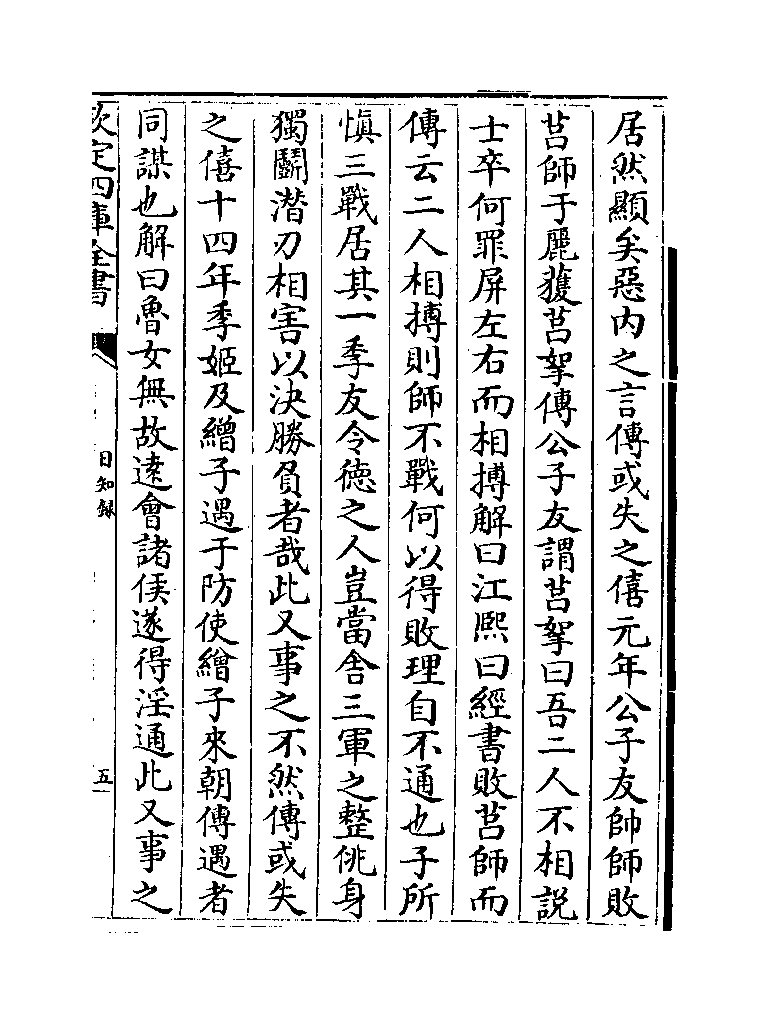 居然顯矣惡内之言傳或失之僖元年公子友帥師敗
莒師于麗獲莒挐傳公子友謂莒挐曰吾二人不相説
士卒何罪屏左右而相搏解曰江熙曰經書敗莒師而
傳云二人相搏則師不戰何以得敗理自不通也子所
慎三戰居其一季友令徳之人豈當舍三軍之整佻身
獨鬭潛刃相害以決勝負者哉此又事之不然傳或失
之僖十四年季姬及繒子遇于防使繒子來朝傳遇者
同謀也解曰魯女無故逺會諸侯遂得淫通此又事之
欽定四庫全書
日知録
五